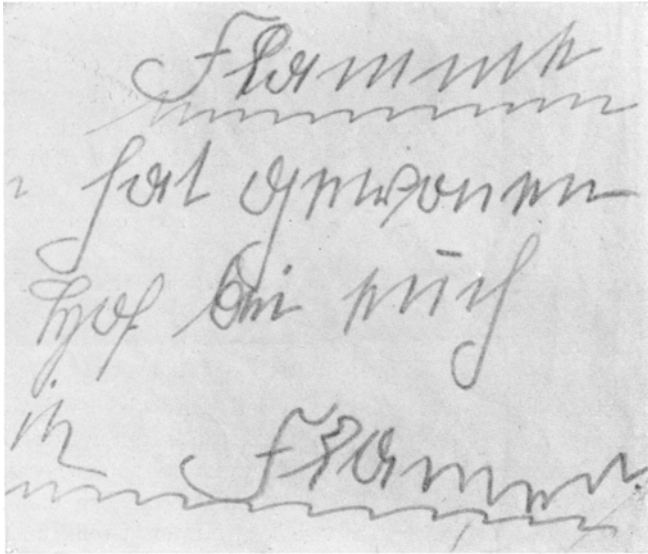 Flamme
hat gewonen
Hof bei euch
in Flamen